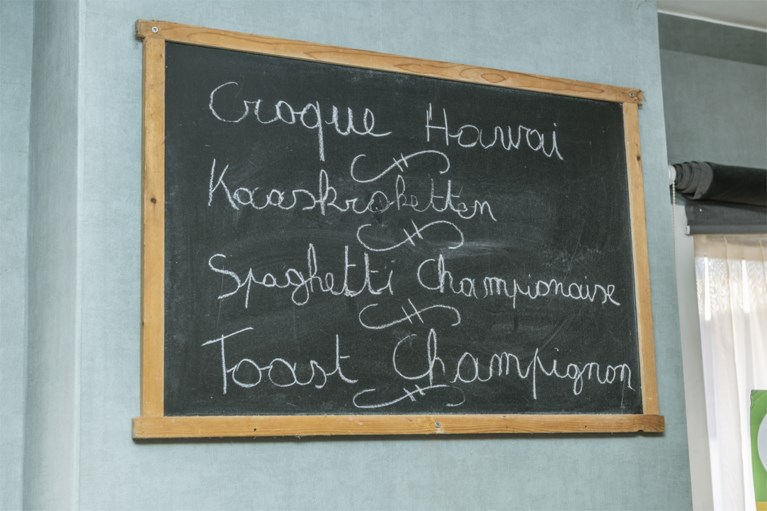 Croque Hawai
Kaaskroketten
Spaghetti Championaise
Toast Champignon